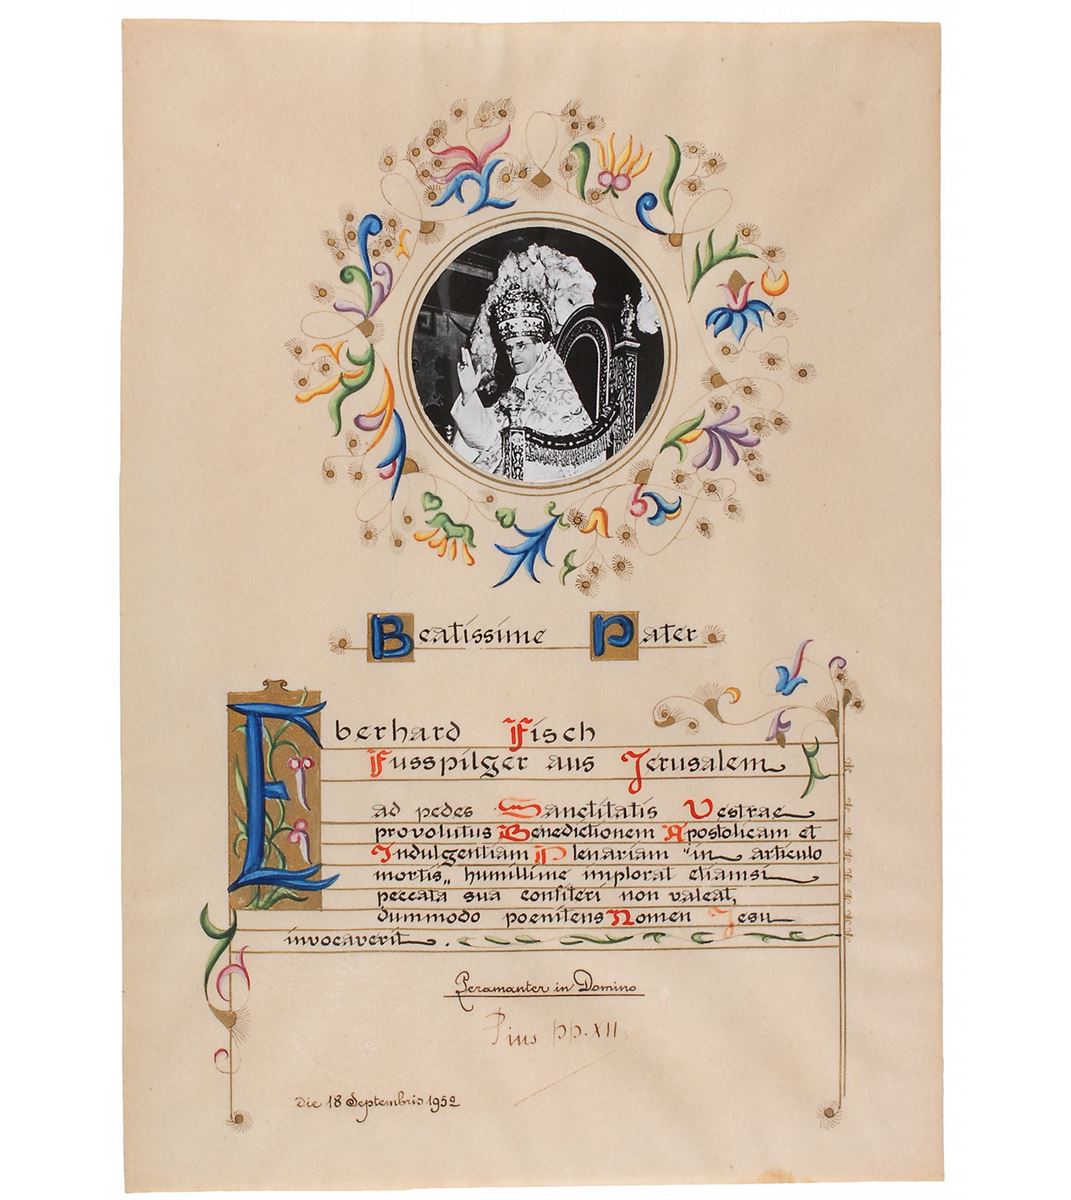 Beatissime Pater
Eberhard Fisch
Fusspilger aus Jerusalem
ad pedes Sanctitatis Vestrae
provolutus Benedictionem Apostolicam et
Indulgentiam Plenariam "in articulo
mortis„ humillime implorat etiamsi
peccata sua confiteri non valeat,
dummodo poenitens Nomen Jesu
invocaverit.
Peramanter in Domino
Pius pp. XII
Die 18 Septembris 1952